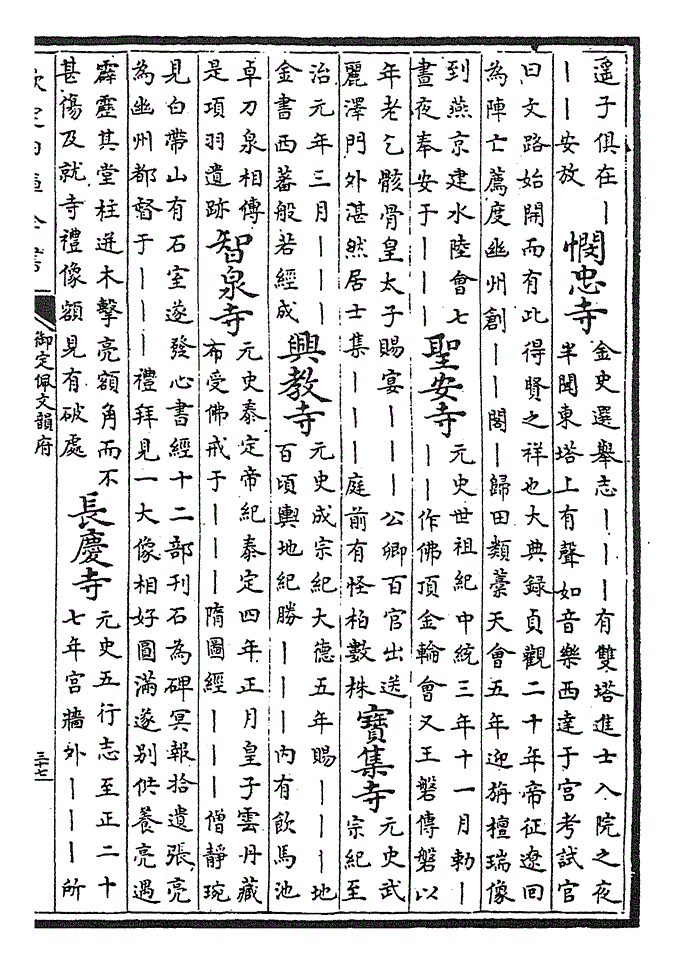 遥子俱在｜
｜｜安放
憫忠寺
金史選舉志｜｜｜有雙塔進士入院之夜
半聞東塔上有聲如音樂西達于宮考試官
曰文路始開而有此得賢之祥也大典録貞觀二十年帝征遼回
為陣亡薦度幽州創｜｜閣｜歸田類藁天會五年迎旃檀瑞像
到燕京建水陸會七
晝夜奉安于｜｜｜
聖安寺
元史世祖紀中統三年十一月勅｜
｜｜作佛頂金輪會又王磐傳磐以
年老乞骸骨皇太子賜宴｜｜｜公卿百官出送
麗澤門外湛然居士集｜｜｜庭前有怪柏數株
寳集寺
元史武
宗紀至
治元年三月｜｜｜
金書西蕃般若經成
興教寺
元史成宗紀大德五年賜｜｜｜地
百頃輿地紀勝｜｜｜内有飲馬池
卓刀泉相傳
是項羽遺跡
智泉寺
元史泰定帝紀泰定四年正月皇子雲丹藏
布受佛戒于｜｜｜隋圖經｜｜｜僧靜琬
見白帶山有石室遂發心書經十二部刋石為碑冥報拾遺張亮
為幽州都督于｜｜｜禮拜見一大像相好圓滿遂别供養亮遇
霹靂其堂柱迸木擊亮額角而不
甚傷及就寺禮像額見有破處
長慶寺
元史五行志至正二十
七年宮牆外｜｜｜所
欽定四庫全書
御定佩文韻府
三十七